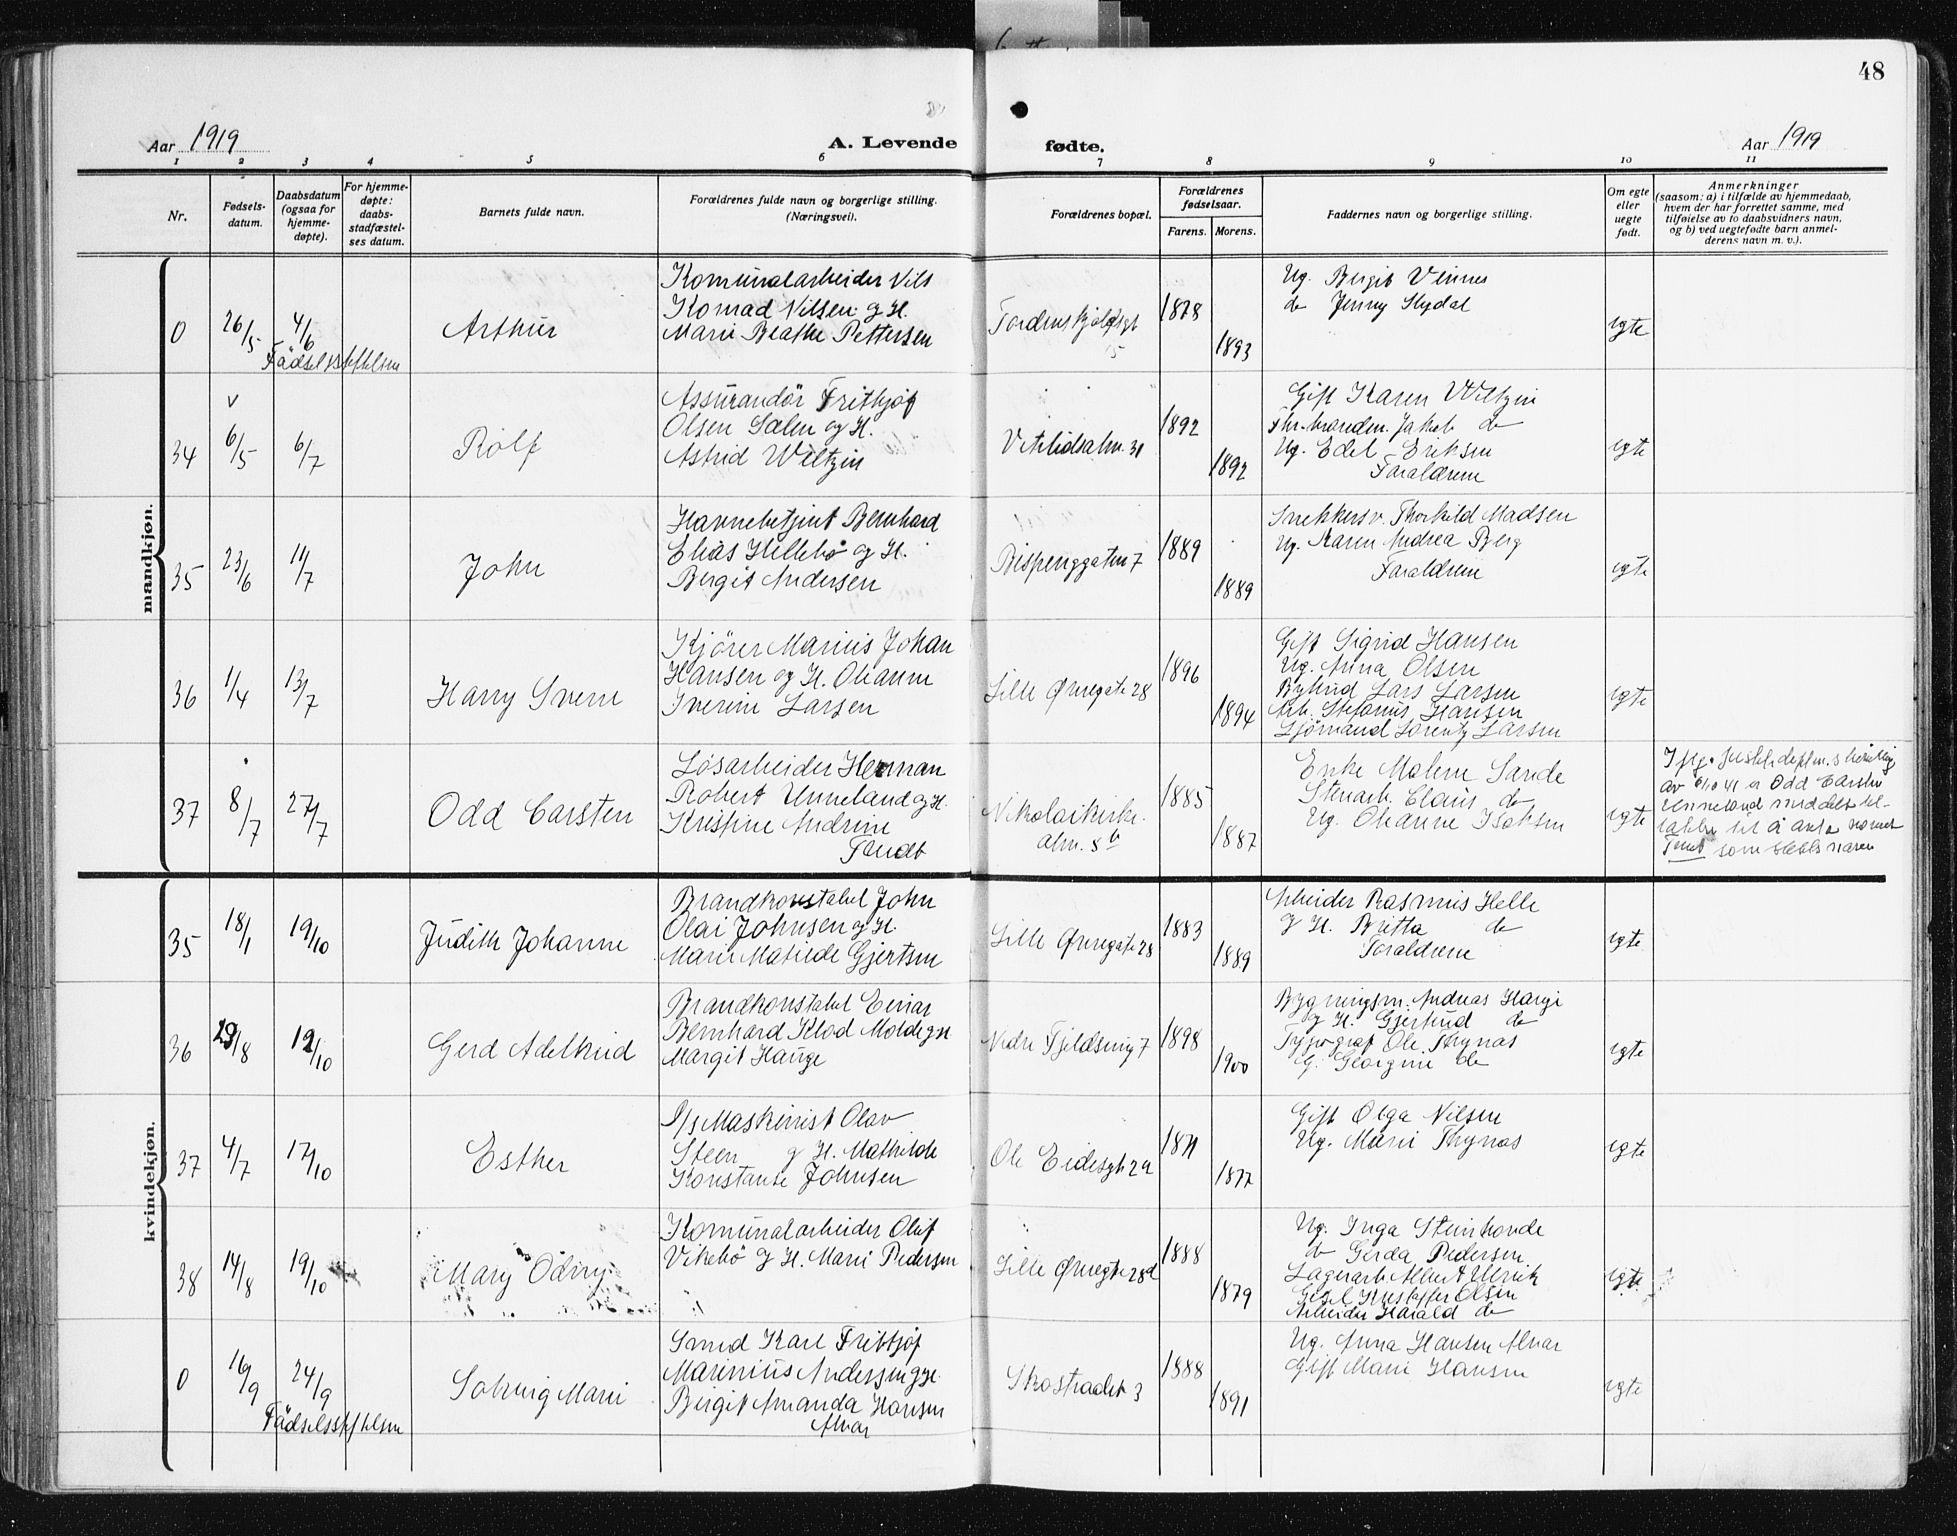 48
Aar 1919
A. Levende fødte.
Aar 1919
1 2 3 4 5 6 7 8 9 10 11
Nr.
Fødsels-
datum.
Daabsdatum
(ogsaa for
hjemme-
døpte).
For hjemme-
døpte:
daabs-
stadfæstel-
ses datum.
Barnets fulde navn.
Forældrenes fulde navn og borgerlige stilling.
(Næringsvei).
Forældrenes bopæl.
Forældrenes
fødselsaar.
Farens. Morens.
Faddernes navn og borgerlige stilling.
Om egte
eller
uegte
født.
Anmerkninger
(saasom: a) i tilfælde av hjemmedaab,
hvem der har forrettet samme, med
tilføielse av to daabsvidners navn,
og b) ved uegtefødte barn anmel-
derens navn m. v.).
mandkjøn.
0 26/5 4/6
Fødselsstiftelsen
Arthur
Komunalarbeider Nils
Konrad Nilsen og H.
Marie Beathe Pettersen
Tordenskjoldsgt
15
1878
1893
Ug. Bergit Vinnes
do Jenny Hydal
egte
34 6/5 6/7
Rolf
Assurandör Frithjof
Olsen Salen og H.
Astrid Wiltzin
Vetrlidsalm. 31
1892
1892
Gift Karen Wiltzin
Jakob do
Ug. Edel Eriksen
Forældrene
egte
35 23/6 11/7
John
Havnebetjent Bernhard
Elias Hillebö og H.
Bergit Andersen
Bispenggaten 7
1889
1889
Snekkersv. Thorkild Madsen
Ug. Karen Andrea Berg
Forældrene
egte
36 1/4 13/7
Harry Sverre
Kjörer Marius Johan
Hansen og H. Ohanne
Iverine Larsen
Lille Øvregate 28
1896
1894
Gift Sigrid Hansen
Ug. Anna Olsen
Bybud Lars Larsen
Arb. Stefanus Hansen
Sjömand Lorentz Larsen
egte
37 8/7 27/7
Odd Carsten
Løsarbeider Herman
Robert Unneland og H.
Kristine Andrine
Tundt
Nikolaikirke-
alm. 8b
1885
1887
Enke Malene Sande
Stenarb. Claus do
Ug. Ohanne Isaksen
egte
Ifg. Justitsdeptm.s bevillig
av 6/10 41 er Odd Carsten
Unneland meddelt til-
latelse til å anta navnet
som slektsnavn
kvindekjøn.
35 18/1 19/10
Judith Johanne
Brandkonstabel John
Olai Johnsen og H.
Marie Matilde Gjertsen
Lille Øvregate 28
1883
1889
Arbeider Rasmus Helle
og H. Britta do
Forældrene
egte
36 29/8 12/10
Gerd Adelheid
Brandkonstabel Einar
Bernhard Klod Molde og H
Margit Hauge
Nedre Fjeldsmug 7
1898
1900
Bygningsm. Andreas Hauge
og H. Gjertrud do
Typograf Ole Thynas
G. Georgine do
egte
37 4/7 17/10
Esther
D/s Maskinist Olav
Steen og H. Mathilde
Konstanse Johnsen
Ole Eidesgt 29
1871
1877
Gift Olga Nilsen
Ug. Marie Thynas
egte
38 14/8 19/10
Mary Odny
Komunalarbeider Olaf
Vikebö og H. Marie Pedersen
Lille Øvregt 28d
1888
1879
Ug. Inga Steinkonde
do Gerda Pedersen
Lagerarb. Albert Ulrik
Gesel Kristoffer Olsen
Arbeider Harald do
egte
0 16/9 24/9
Fødselsstiftelsen
Solveig Marie
Smed Karl Frithjof
Marinius Andersen og H.
Bergit Amanda Hansen
Alvar
Skostrædet 3
1888
1891
Ug. Anna Hansen Alvar
Gift Marie Hansen
egte